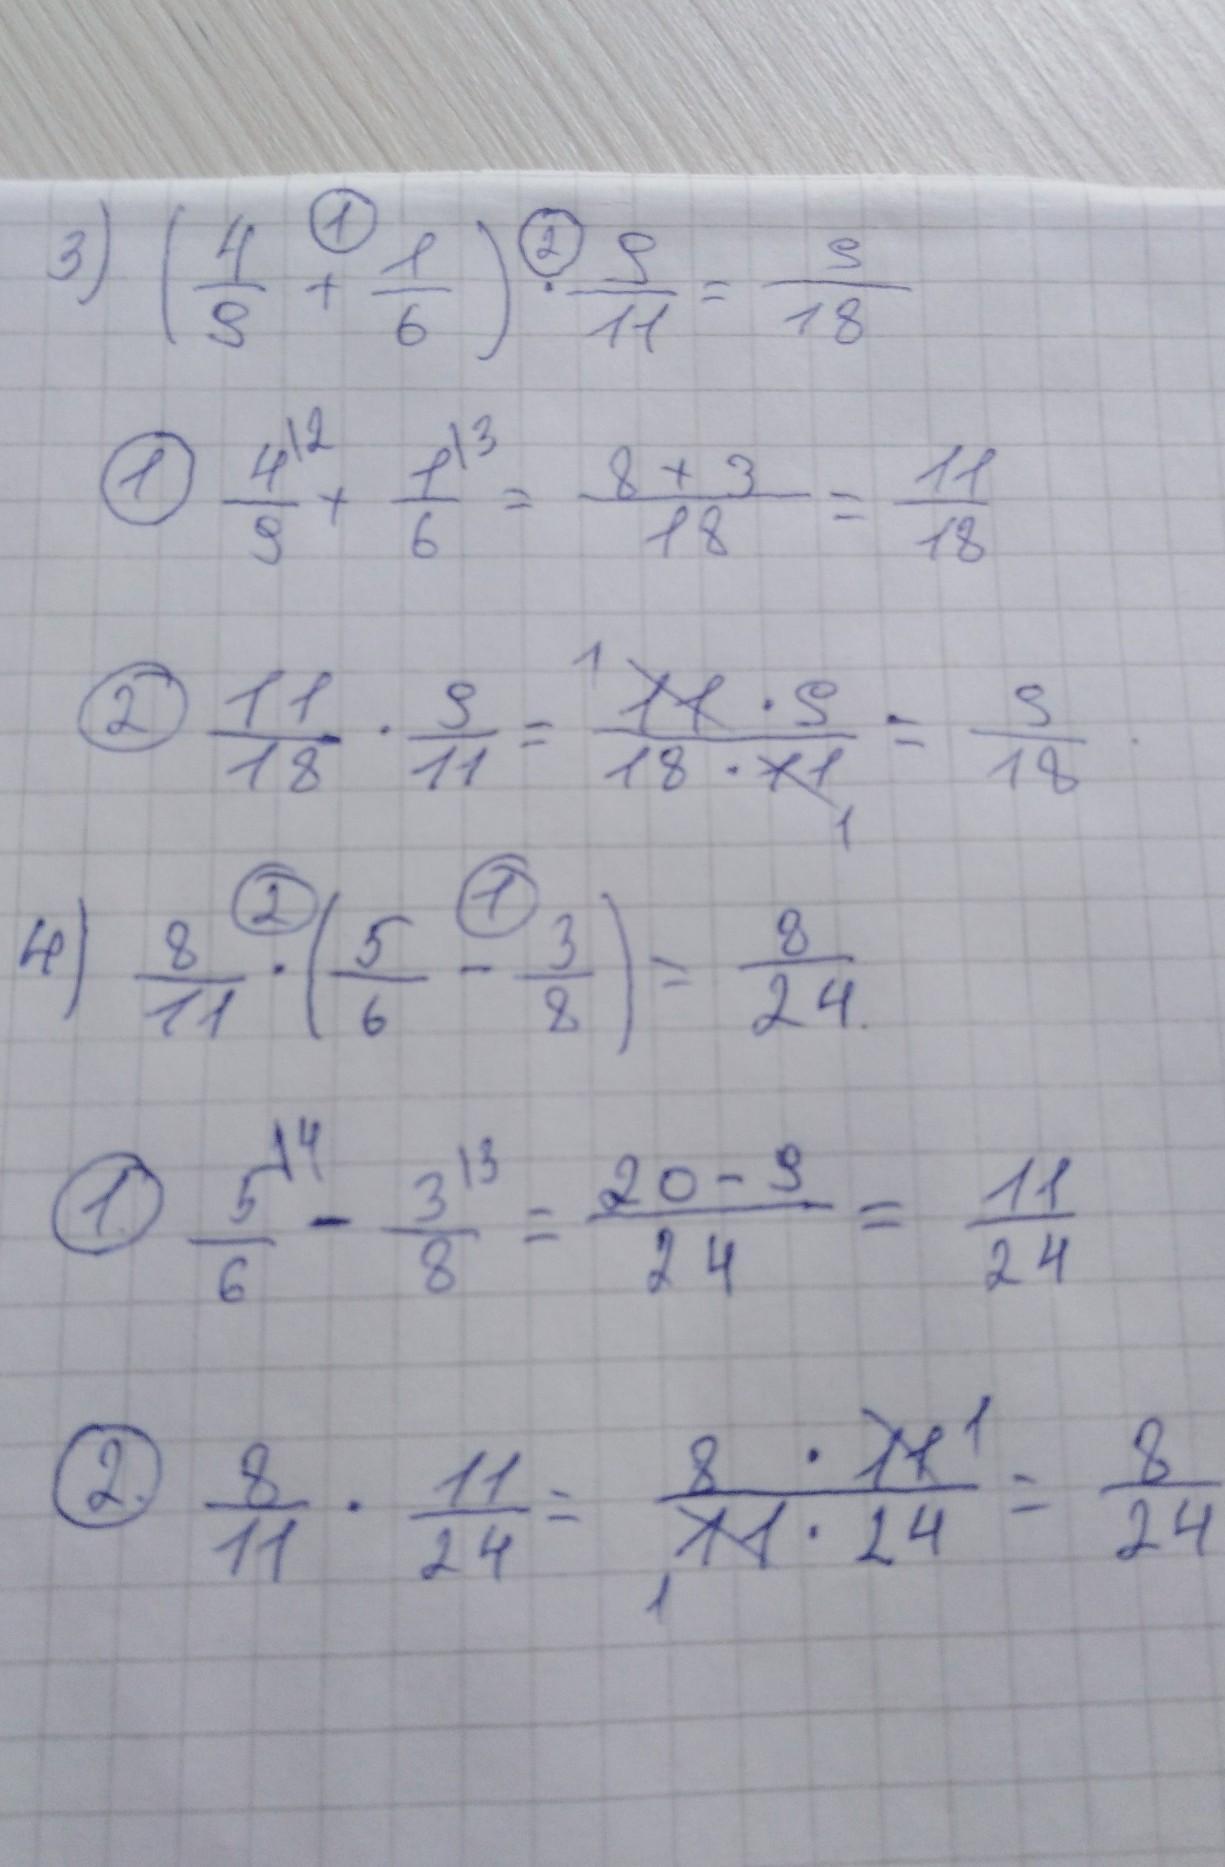 3) (4/9 + 1/6) · 9/11 = 9/18
① 4\2/9 + 1\3/6 = 8 + 3/18 = 11/18
② 11/18 · 9/11 = 11 · 9/18 · 11 = 9/18
4) 8/11 · (5/6 - 3/8) = 8/24.
① 5\4/6 - 3\3/8 = 20 - 9/24 = 11/24
②. 8/11 · 11/24 = 8 · 11/11 · 24 = 8/24